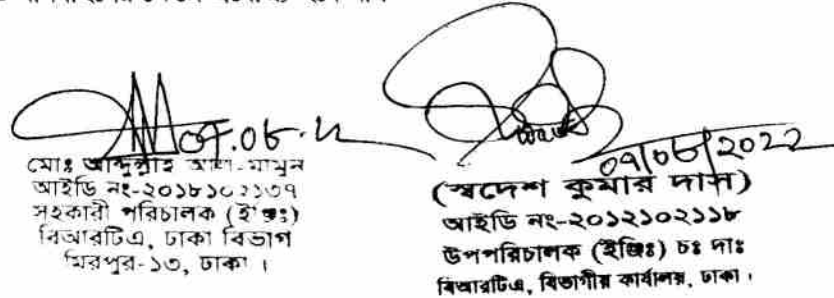 মোঃ আব্দুল্লাহ আল-মামুন
আইডি নং-২০১৮১০২১৩৭
সহকারী পরিচালক (ইঞ্জিঃ)
বিআরটিএ, ঢাকা বিভাগ
মিরপুর-১৩, ঢাকা ।
০৭/০৮/2022
(স্বদেশ কুমার দাস)
আইডি নং-২০১২১০২১১৮
উপপরিচালক (ইঞ্জিঃ) চঃ দাঃ
বিআরটিএ, বিভাগীয় কার্যালয়, ঢাকা ।